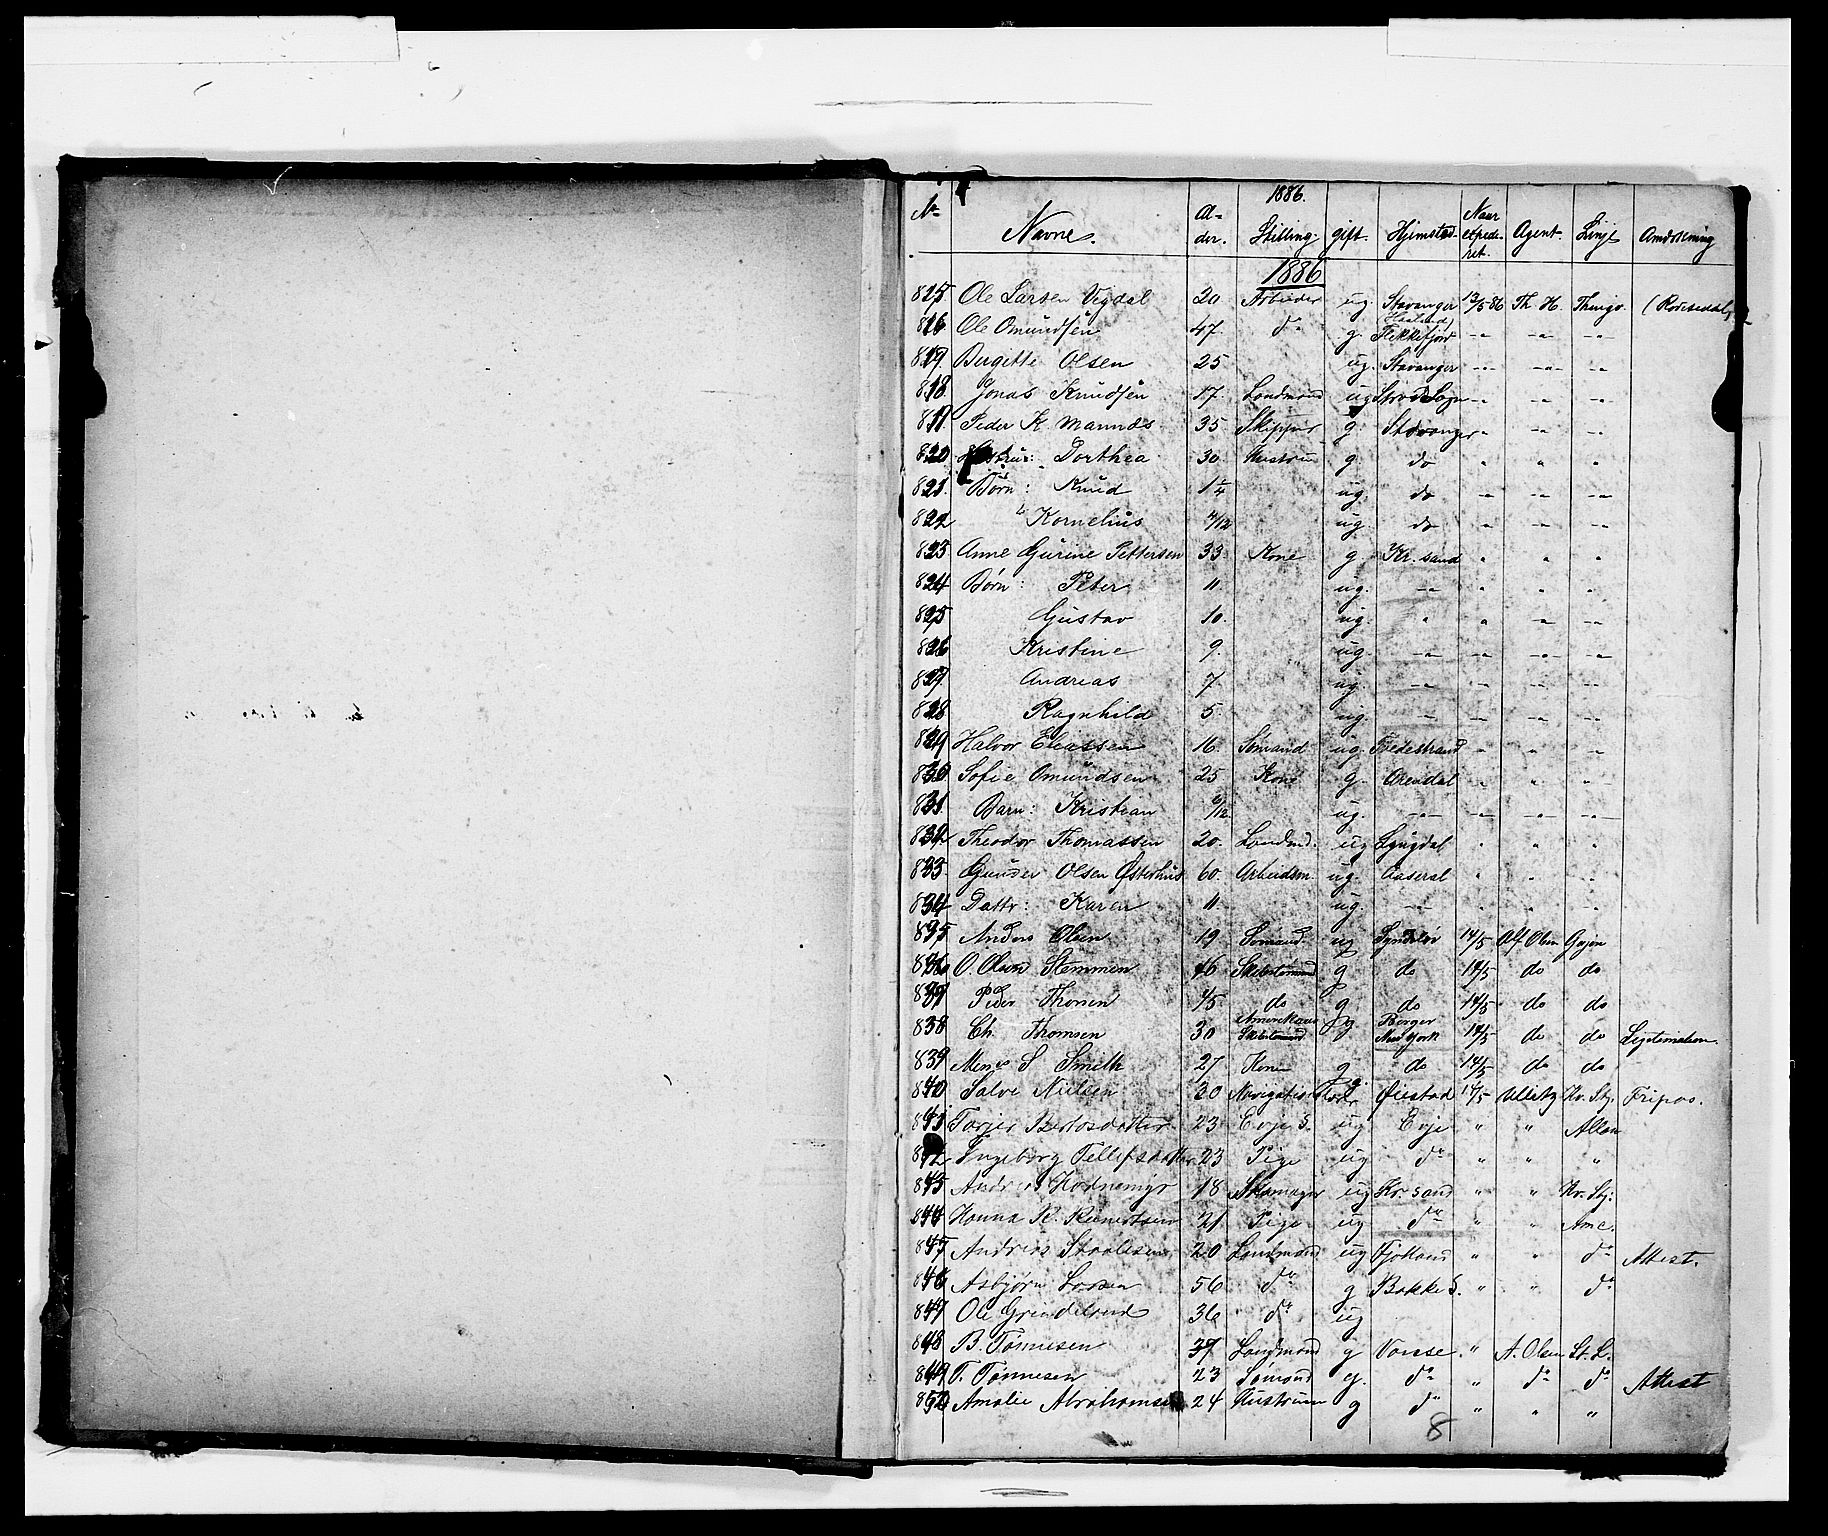 1886.
No Navne. Al-der. Stilling. gift. Hjemsted Naar expede-ret. Agent. Linje Anmærkning
1886
815 Ole Larsen Vigdal 20 Arbeider ug. Stavanger 12/5 86 Th. H. Thingv.
816 Ole Omundsen 47 do g. Flekkefjord -"- -"- -"-
817 Birgitte Olsen 25 ug. Stavanger -"- -"- -"-
818 Jonas Knudsen 17. Landmand ug -"- -"- -"-
819 Peder K. 35 Skipper g. Stavanger " -"- -"-
820 Hustru: Dorthea 30 Hustru g. do " " "
821. Børn: Knud 1 1/4 ug. do -"- -"- -"-
822 " Kornelius 4/12 ug. do " -"- -"-
823 Anne Gurine Pettersen 33 Kone g Kr.sand " " "
824 Børn: Peter 11. ug. -"- " " "
825 Gustav 10. ug. " -"- -"- -"-
826 Kristine 9. ug. -"- -"- -"- -"-
827 Andreas 7. ug. -"- -"- -"- -"-
828 Ragnhild 5. ug. -"- -"- -"- -"-
829 Halvor Eliassen 16. Sømand ug. " " "
830 Sofie Omundsen 25 Kone g. Arendal " " "
831 Barn: Kristian /12 ug. -"- -"- -"- -"-
832. Theodor Thomassen 20. Landmd. ug Lyngdal " " "
833. Gunder Olsen Østerhus 60 Arbeidsm. ug. Aaseral " " "
834 Dattr: Karen 11 ug. -"- " " "
835 Anders Olsen 19 Sømand ug 14/5 Alf. Olsen Geijsen
836 O. Olsen Stemmen 46 g do 14/5 do do
837 Peder Thorsen 45 do g do 14/5 do do
838 Ch. Thomsen 30 g. New York 14/5 do do Legitimation.
839 S Smith 27 Kone g do 14/5 do do
840 Salve Nielsen 20 Øiestad 14/5 Ullitz Kr. Stj. Fripas.
841 Tarjer 23 Evje S. ug Evje " " Allan
842 Ingeborg Tellefsdatter 23 Pige ug do " " "
843 Andreas 18 Skomager ug Kr.sand " " Kr. Stj:
844 Hanna K. 21 Pige ug do " " Ame.
845 Andreas 20 Landmand ug Fjotland " " do Attest.
846 Asbjørn Larsen 56 do g Bakke S. " " do
847 Ole 36 do ug
848 B. Tønnesen 37 Landmand g Vanse " A. Olsen St. L.
849 T. Tønnesen 23 Sømand g. do " do do Attest
850 Amalie Abrahamsen 24 Hustruen g do " " "
8